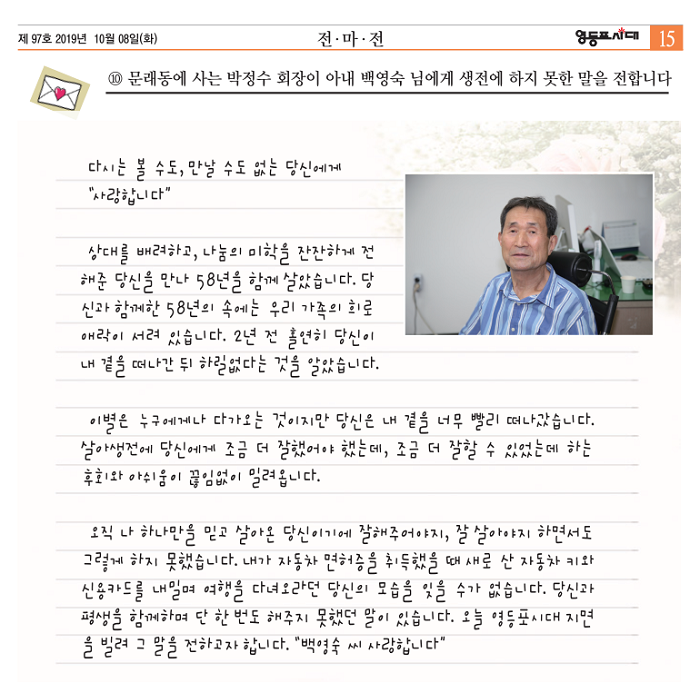 제 97호 2019년 10월 08일(화)
전·마·전
영등포시대
15
⑩ 문래동에 사는 박정수 회장이 아내 백영숙 님에게 생전에 하지 못한 말을 전합니다
다시는 볼 수도, 만날 수도 없는 당신에게
"사랑합니다"
상대를 배려하고, 나눔의 미학을 잔잔하게 전
해준 당신을 만나 58년을 함께 살았습니다. 당
신과 함께한 58년의 속에는 우리 가족의 희로
애락이 서려 있습니다. 2년 전 홀연히 당신이
내 곁을 떠나간 뒤 하릴없다는 것을 알았습니다.
이별은 누구에게나 다가오는 것이지만 당신은 내 곁을 너무 빨리 떠나갔습니다.
살아생전에 당신에게 조금 더 잘했어야 했는데, 조금 더 잘할 수 있었는데 하는
후회와 아쉬움이 끊임없이 밀려옵니다.
오직 나 하나만을 믿고 살아온 당신이기에 잘해주어야지, 잘 살아야지 하면서도
그렇게 하지 못했습니다. 내가 자동차 면허증을 취득했을 때 새로 산 자동차 키와
신용카드를 내밀며 여행을 다녀오라던 당신의 모습을 잊을 수가 없습니다. 당신과
평생을 함께하며 단 한 번도 해주지 못했던 말이 있습니다. 오늘 영등포시대 지면
을 빌려 그 말을 전하고자 합니다. "백영숙 씨 사랑합니다"